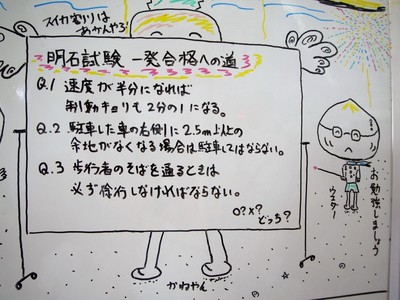 スイカ割りは
あかんやろ
明石試験 一発合格への道
Q.1 速度が半分になれば
制動キョリも2分の1になる。
Q.2 駐車した車の右側に2.5m以上の
余地がなくなる場合は駐車してはならない。
Q.3 歩行者のそばを通るときは
必ず徐行しなければならない。
○?×?
どっち?
お勉強しましょう
ウエダー
かねやん